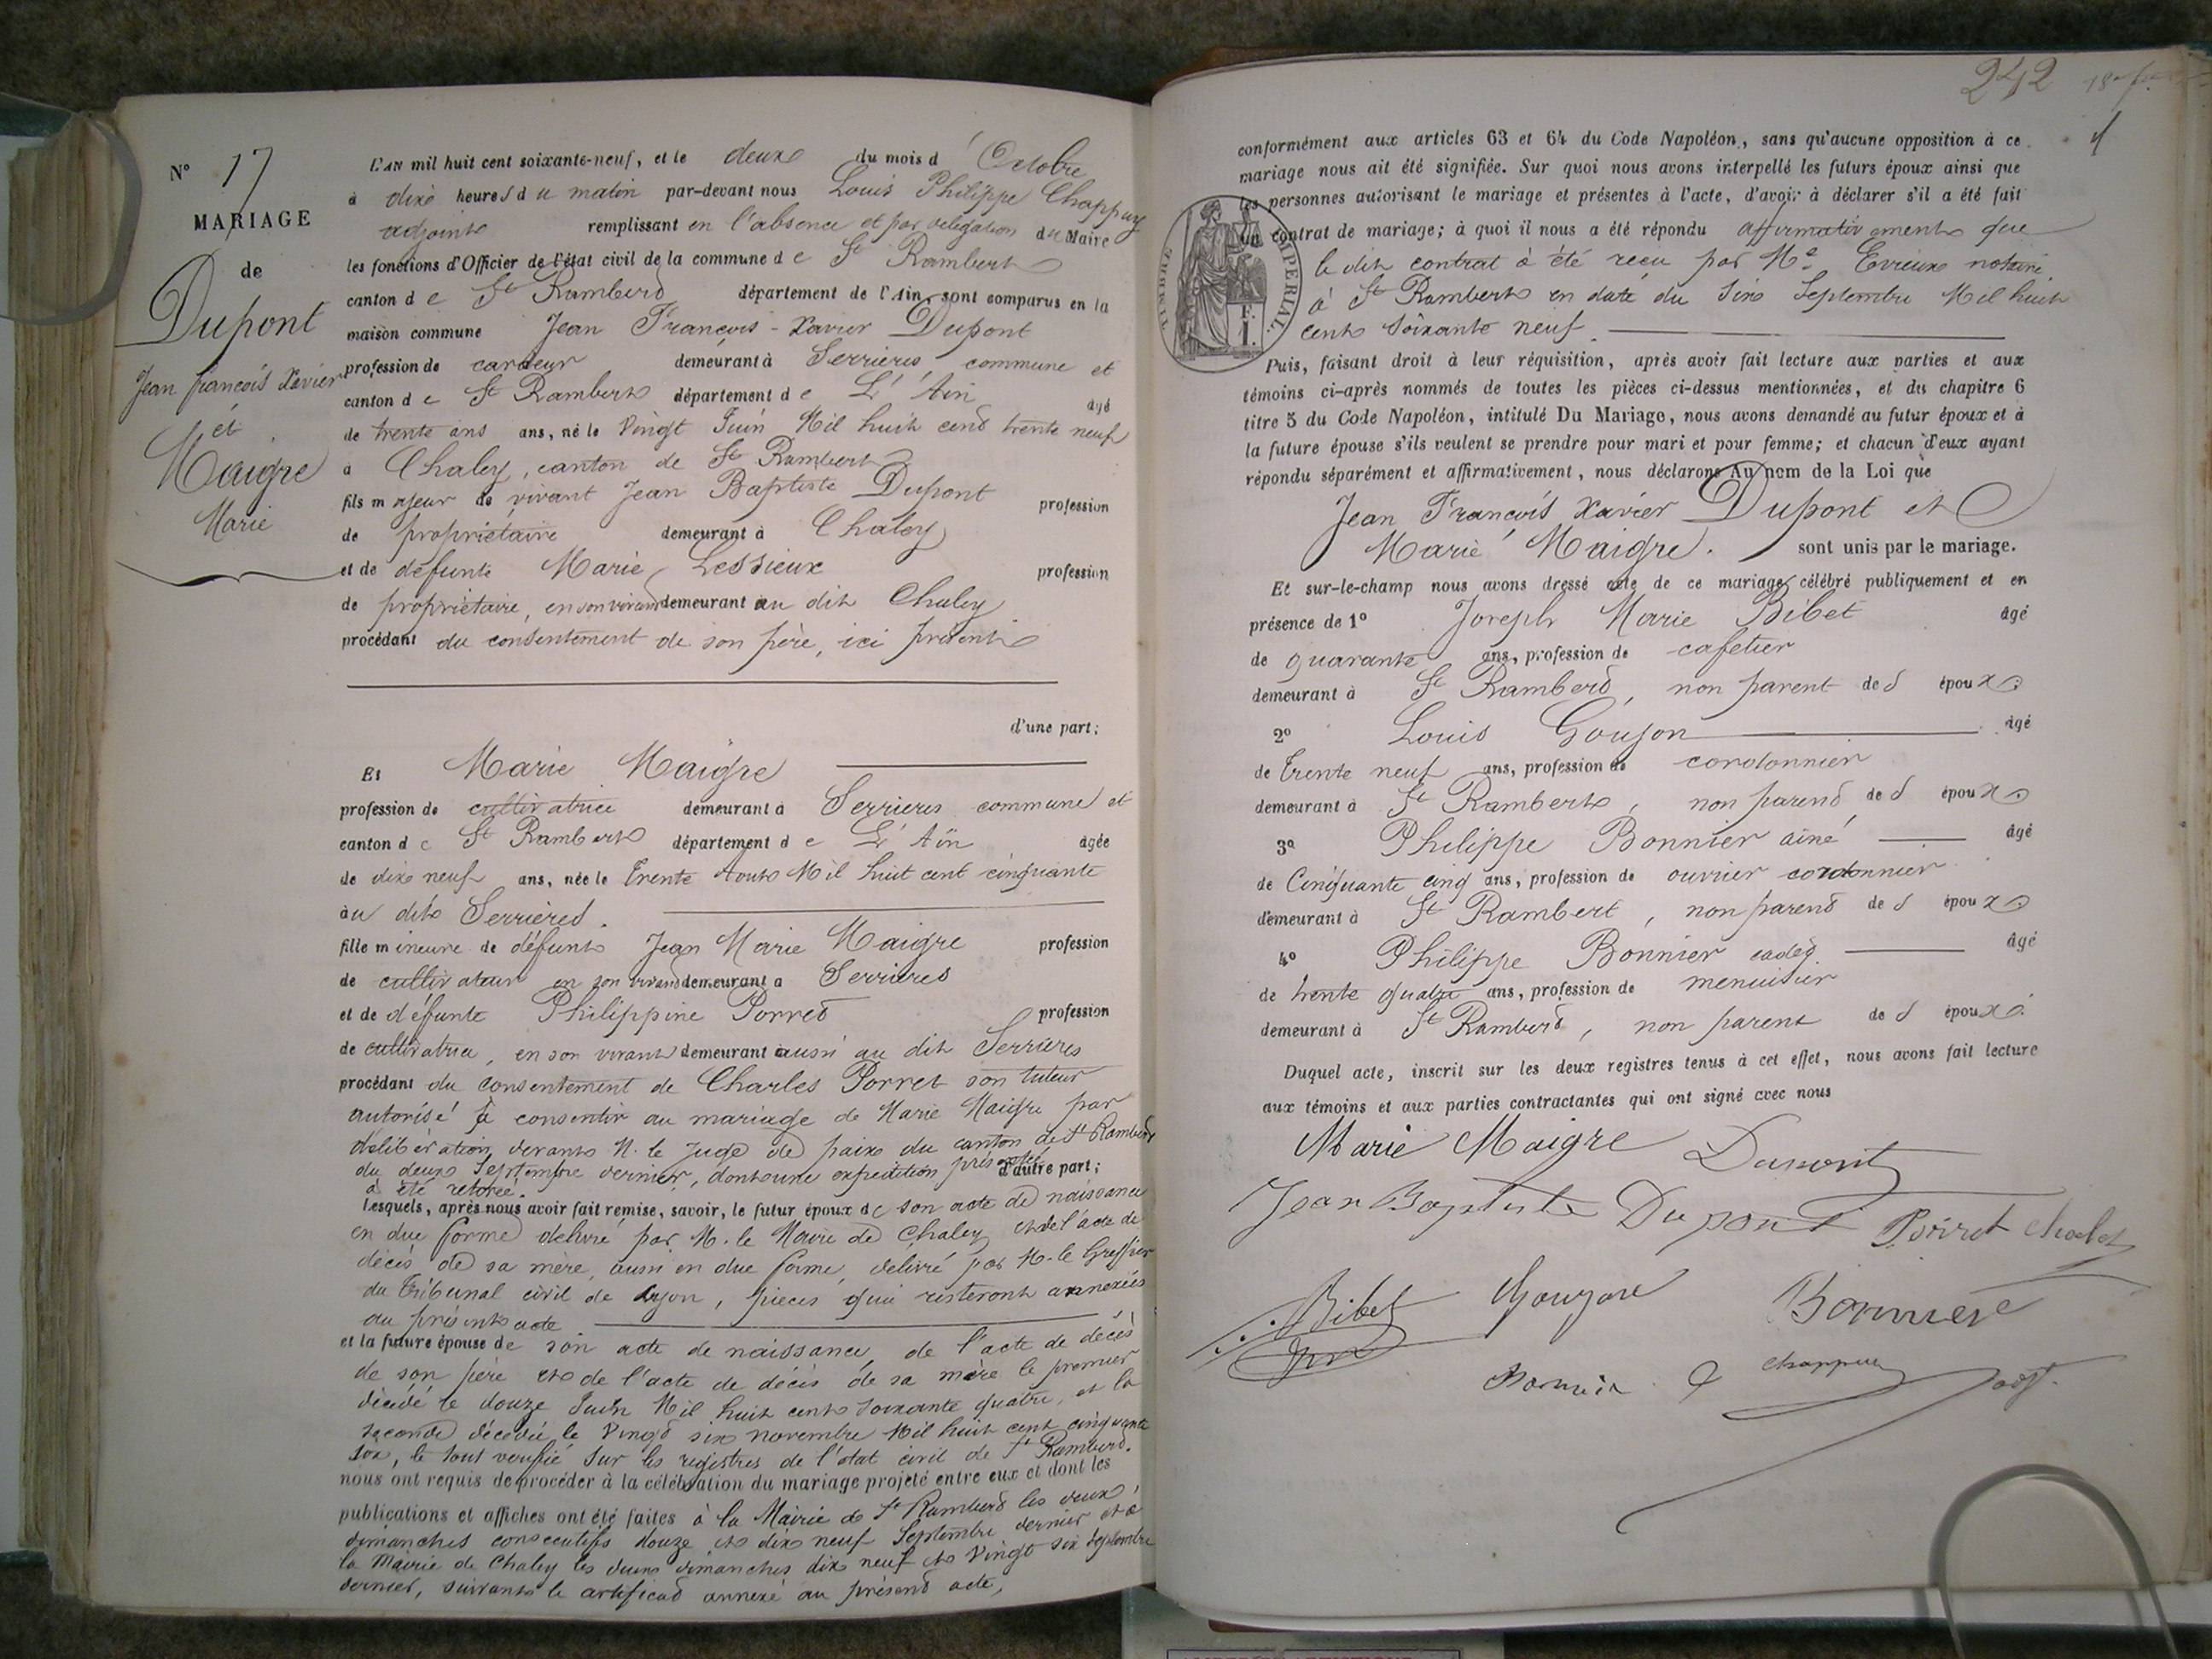 N° 17
MARIAGE
de
Dupont
Jean françois Xavier
et
Maigre
Marie
L'AN mil huit cent soixante-neuf, et le deux du mois d'Octobre
à dix heures du matin par-devant nous Louis Philippe Chappuy
adjoint remplissant en l'absence et par délégation du Maire
les fonctions d'Officier de l'état civil de la commune de St Rambert
canton de St Rambert département de l'Ain, sont comparus en la
maison commune Jean François-Xavier Dupont
profession de cardeur demeurant à Serrières, commune et
canton de St Rambert département de L'Ain âgé
de trente ans ans, né le Vingt Juin Mil huit cent trente neuf
à Chaley, canton de St Rambert
fils majeur de vivant Jean Baptiste Dupont profession
de propriétaire demeurant à Chaley
et de défunte Marie Lessieux profession
de propriétaire, en son vivant demeurant au dit Chaley
procédant du consentement de son père, ici présent
d'une part;
Et Marie Maigre
profession de cultivatrice demeurant à Serrières commune et
canton de St Rambert département de L'Ain âgée
de dix neuf ans, née le trente Août Mil huit cent cinquante
au dit Serrières.
fille mineure de défunt Jean Marie Maigre profession
de cultivateur en son vivant demeurant à Serrières
et de défunte Philippine Porret profession
de cultivatrice, en son vivant demeurant aussi au dit Serrières
procédant du consentement de Charles Porret son tuteur
autorisé à consentir au mariage de Marie Maigre par
délibération devant M. le Juge de paix du canton de St Rambert
du deux Septembre dernier, dont une expédition présentée d'autre part;
a été retirée.
Lesquels, après nous avoir fait remise, savoir, le futur époux de son acte de naissance
en due forme délivré par M. le Maire de Chaley et de l'acte de
décès de sa mère, aussi en due forme, délivré par M. le Greffier
du Tribunal civil de Lyon, pièces qui resteront annexées
au présent acte
et la future épouse de son acte de naissance, de l'acte de décès
de son père et de l'acte de décès de sa mère le premier
décédé le douze Juin Mil huit cent soixante quatre, et la
seconde décédée le Vingt six novembre Mil huit cent cinquante
six, le tout vérifié sur les registres de l'état civil de St Rambert.
nous ont requis de procéder à la célébration du mariage projeté entre eux et dont les
publications et affiches ont été faites à la Mairie de St Rambert les deux
dimanches consecutifs douze et dix neuf Septembre dernier et à
la Mairie de Chaley les deux dimanches dix neuf et Vingt six Septembre
dernier, suivant le certificat annexé au présent acte,
242
conformément aux articles 63 et 64 du Code Napoléon, sans qu'aucune opposition à ce
mariage nous ait été signifiée. Sur quoi nous avons interpellé les futurs époux ainsi que
les personnes autorisant le mariage et présentes à l'acte, d'avoir à déclarer s'il a été fait
un contrat de mariage; à quoi il nous a été répondu affirmativement que
le dit contrat à été reçu par Me Evieux notaire
à St Rambert en date du six Septembre Mil huit
cent soixante neuf.
TIMBRE IMPERIAL.
F.
I.
Puis, faisant droit à leur réquisition, après avoir fait lecture aux parties et aux
témoins ci-après nommés de toutes les pièces ci-dessus mentionnées, et du chapitre 6
titre 5 du Code Napoléon, intitulé Du Mariage, nous avons demandé au futur époux et à
la future épouse s'ils veulent se prendre pour mari et pour femme; et chacun d'eux ayant
répondu séparément et affirmativement, nous déclarons Au nom de la Loi que
Jean François Xavier Dupont et
Marie Maigre. sont unis par le mariage.
Et sur-le-champ nous avons dressé acte de ce mariage, célébré publiquement et en
présence de 1° Joseph Marie Bibet âgé
de quarante ans, profession de cafetier
demeurant à St Rambert, non parent des époux
2° Louis Goujon âgé
de trente neuf ans, profession de cordonnier
demeurant à St Rambert, non parent des époux
3° Philippe Bonnier ainé âgé
de Cinquante cinq ans, profession de ouvrier cordonnier
demeurant à St Rambert, non parent des époux
4° Philippe Bonnier cadet âgé
de trente quatre ans, profession de menuisier
demeurant à St Rambert, non parent des époux
Duquel acte, inscrit sur les deux registres tenus à cet effet, nous avons fait lecture
aux témoins et aux parties contractantes qui ont signé avec nous
Marie Maigre Dupont
Jean Baptiste Dupont Porret Charles
Bibet Goujon Bonnier
Bonnier Chappuy adjt.